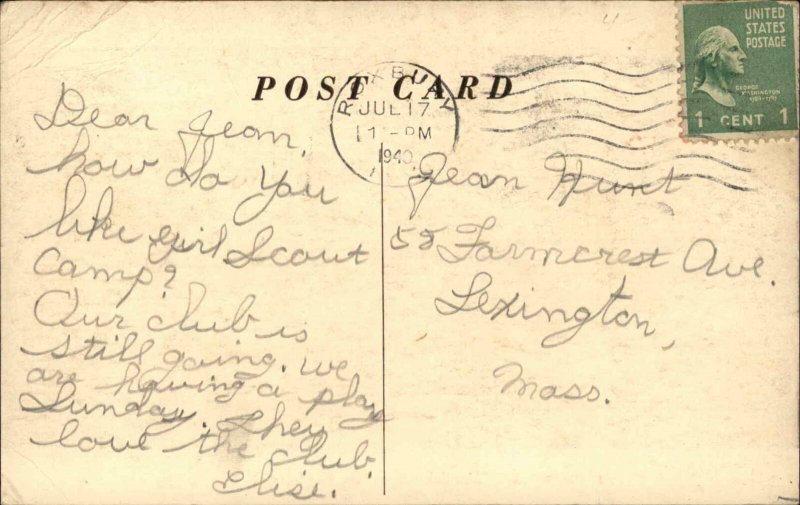 POST CARD
ROXBURY
JUL 17
1 - PM
1940
UNITED
STATES
POSTAGE
GEORGE
WASHINGTON
1 CENT 1
Dear Jean,
how do you
like girl Scout
camp?
Our club is
still going. we
are having a play
Sunday. They
love the club.
Elise.
Jean Hunt
58 Farmcrest Ave.
Lexington,
Mass.